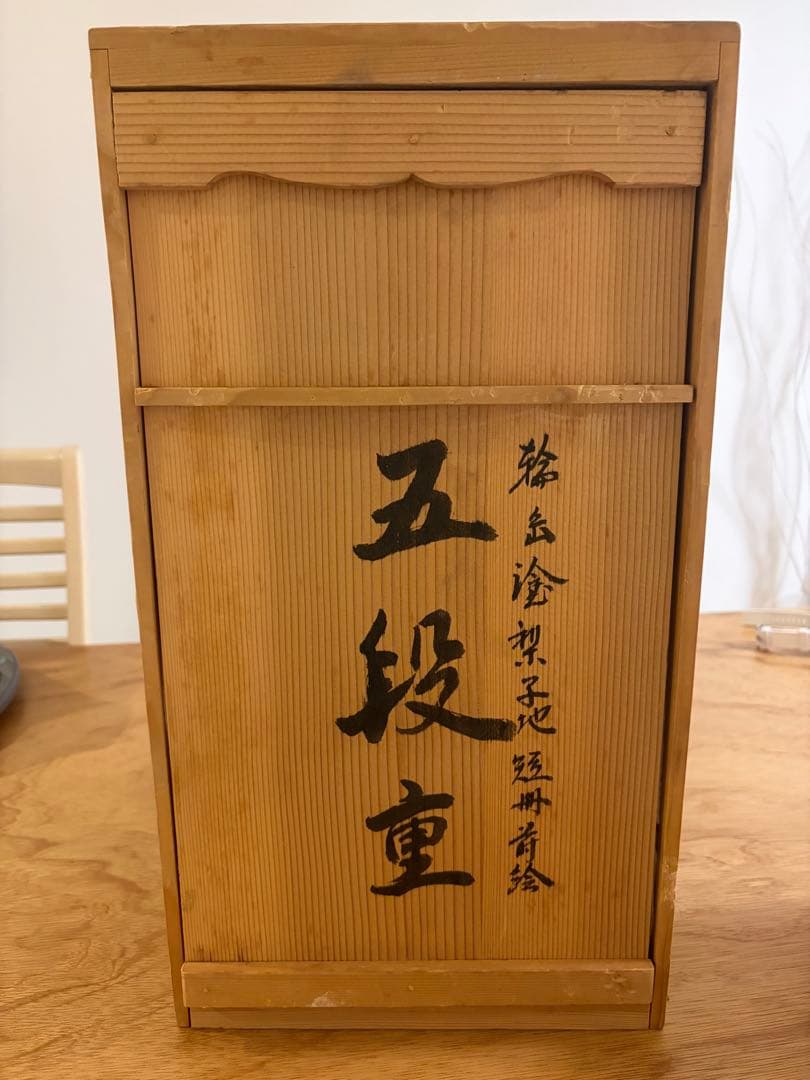 輪島塗梨子地 短冊蒔絵
五段重